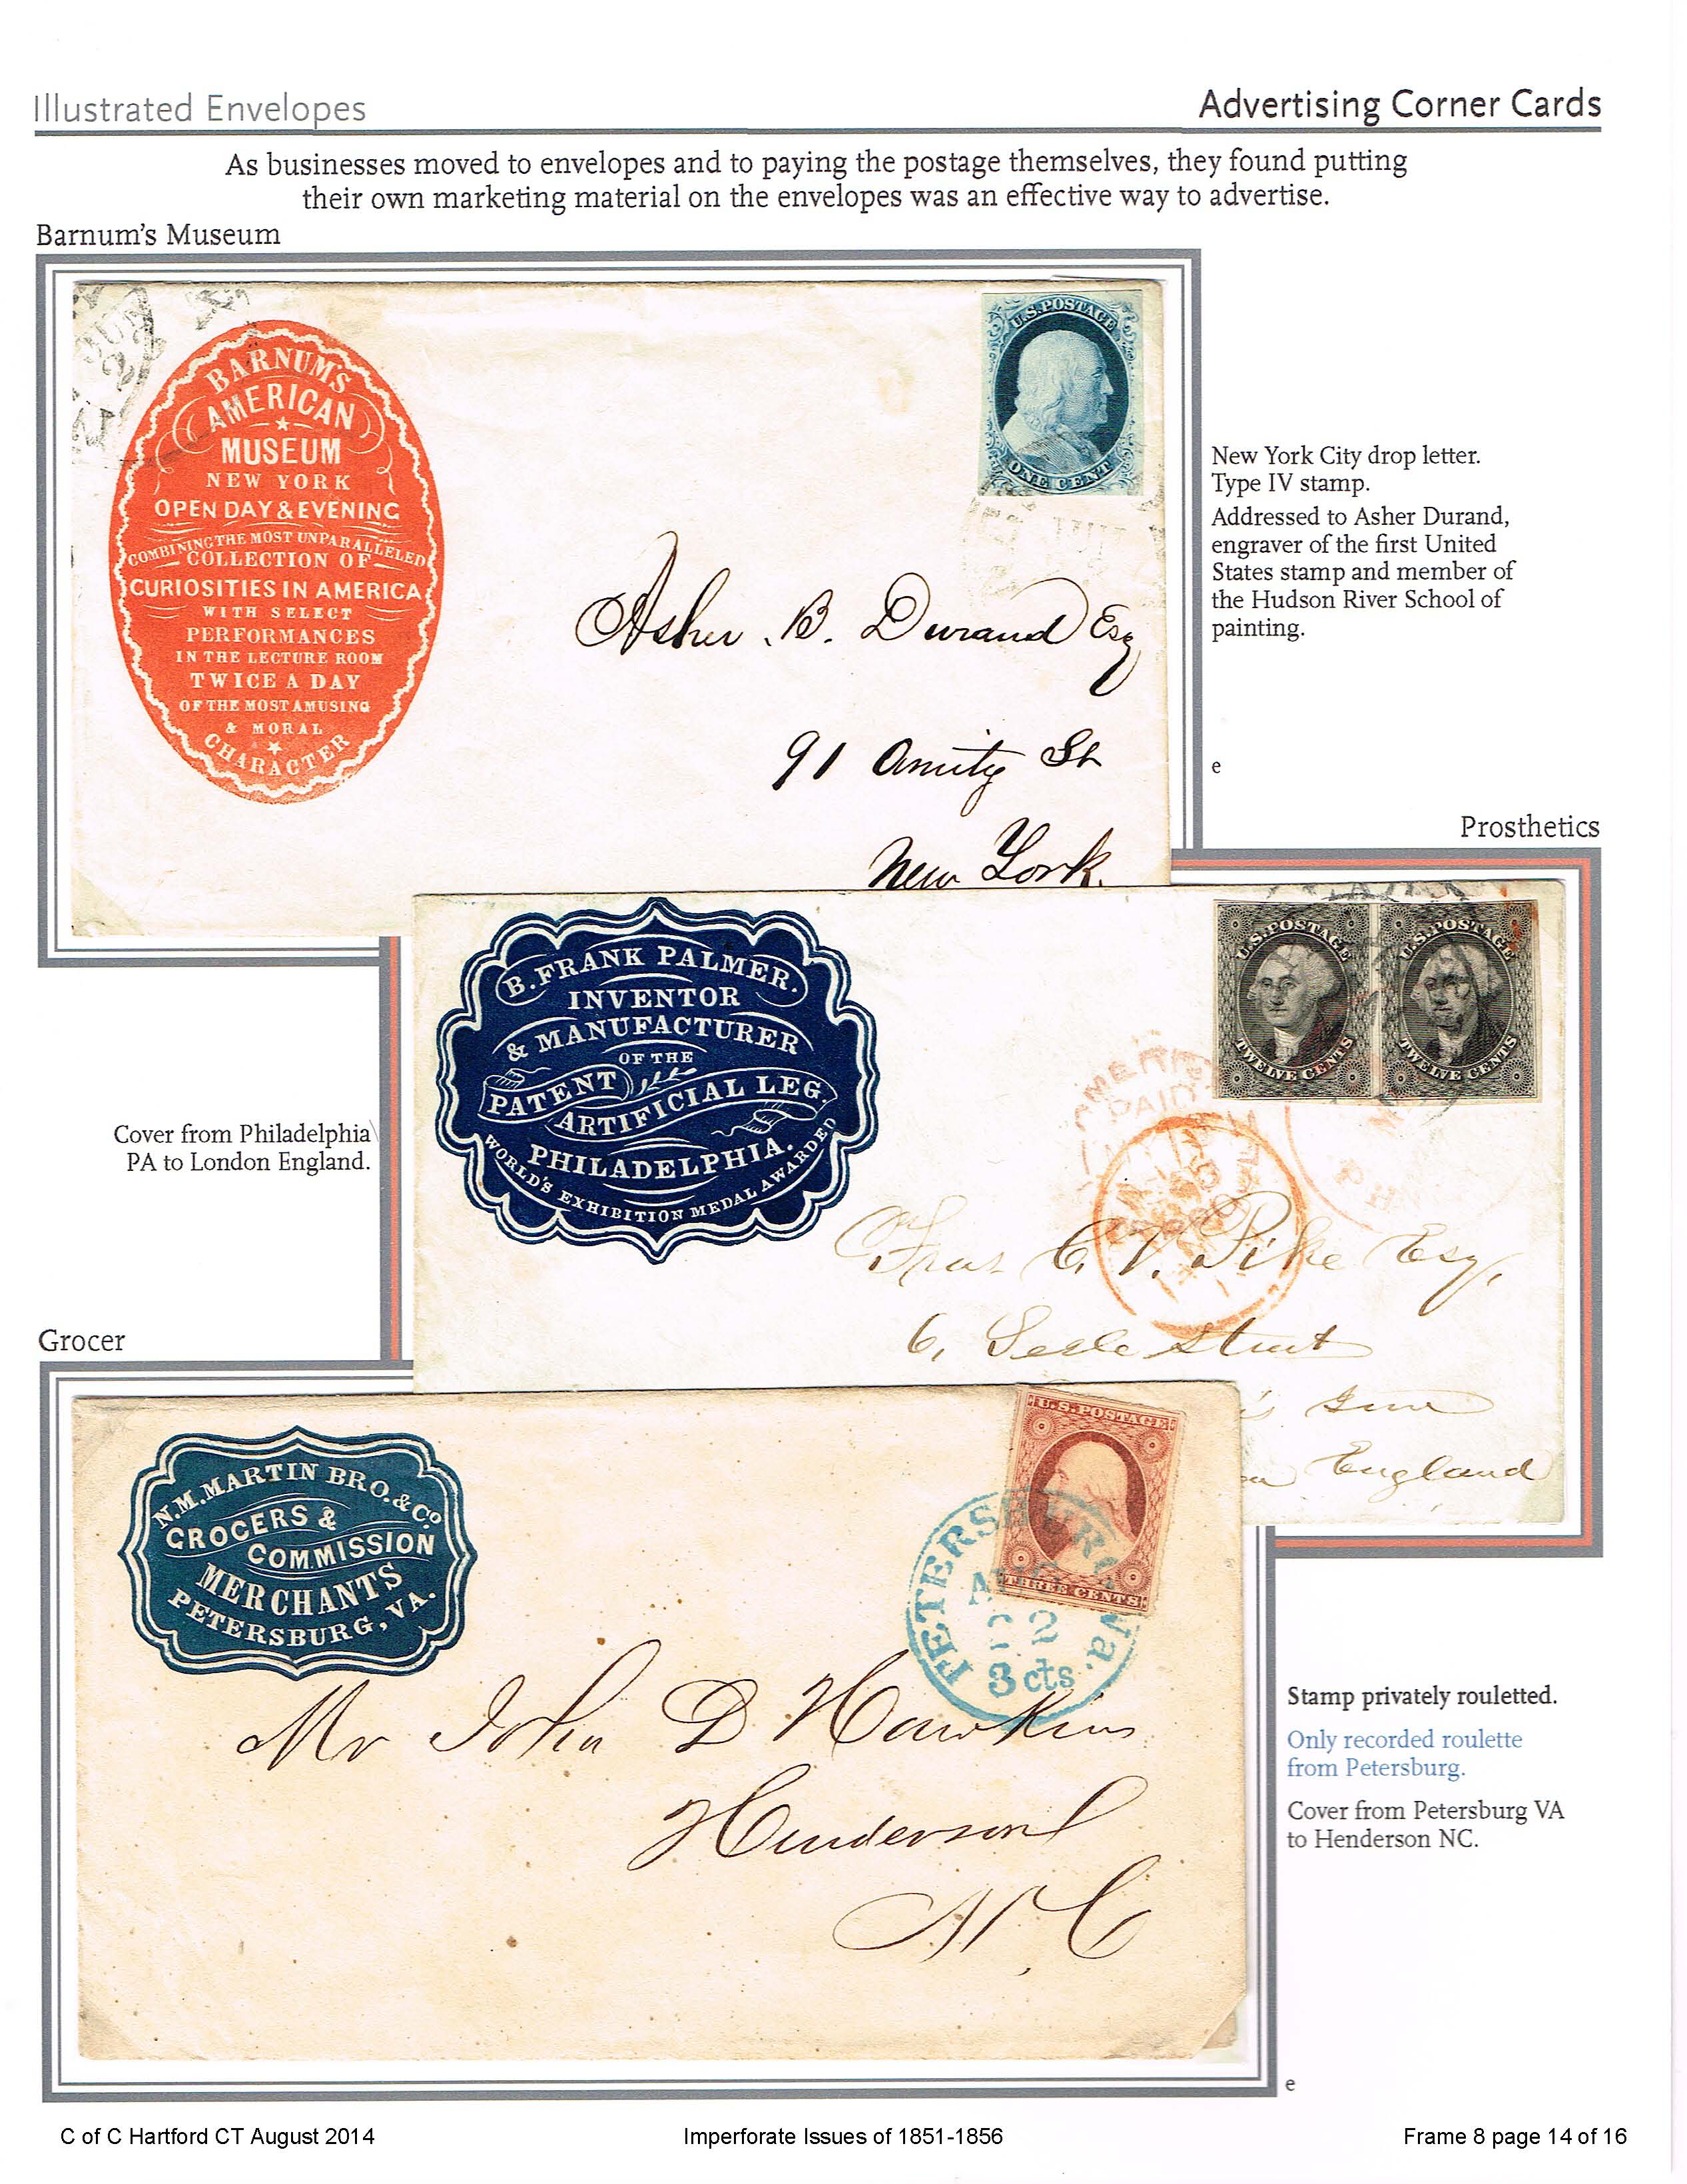 Illustrated Envelopes
Advertising Corner Cards
As businesses moved to envelopes and to paying the postage themselves, they found putting
their own marketing material on the envelopes was an effective way to advertise.
Barnum's Museum
BARNUM'S
AMERICAN
MUSEUM
NEW YORK
OPEN DAY & EVENING
COMBINING THE MOST UNPARALLELED
COLLECTION OF
CURIOSITIES IN AMERICA
WITH SELECT
PERFORMANCES
IN THE LECTURE ROOM
TWICE A DAY
OF THE MOST AMUSING
& MORAL
CHARACTER
U.S. POSTAGE
ONE CENT
Asher B. Durand Esq
91 Amity St
New York.
New York City drop letter.
Type IV stamp.
Addressed to Asher Durand,
engraver of the first United
States stamp and member of
the Hudson River School of
painting.
e
Prosthetics
B. FRANK PALMER.
INVENTOR
& MANUFACTURER
OF THE
PATENT
ARTIFICIAL LEG.
PHILADELPHIA.
WORLD'S EXHIBITION MEDAL AWARDED
U.S. POSTAGE
TWELVE CENTS
U.S. POSTAGE
TWELVE CENTS
PAID
Pike Esq,
6,
England
Cover from Philadelphia
PA to London England.
Grocer
N.M. MARTIN BRO. & Co
GROCERS &
COMMISSION
MERCHANTS
PETERSBURG, VA.
U.S. POSTAGE
THREE CENTS
PETERSBURG Va.
3 cts
Mr John D Hawkins
Henderson
N, C
Stamp privately rouletted.
Only recorded roulette
from Petersburg.
Cover from Petersburg VA
to Henderson NC.
e
C of C Hartford CT August 2014
Imperforate Issues of 1851-1856
Frame 8 page 14 of 16